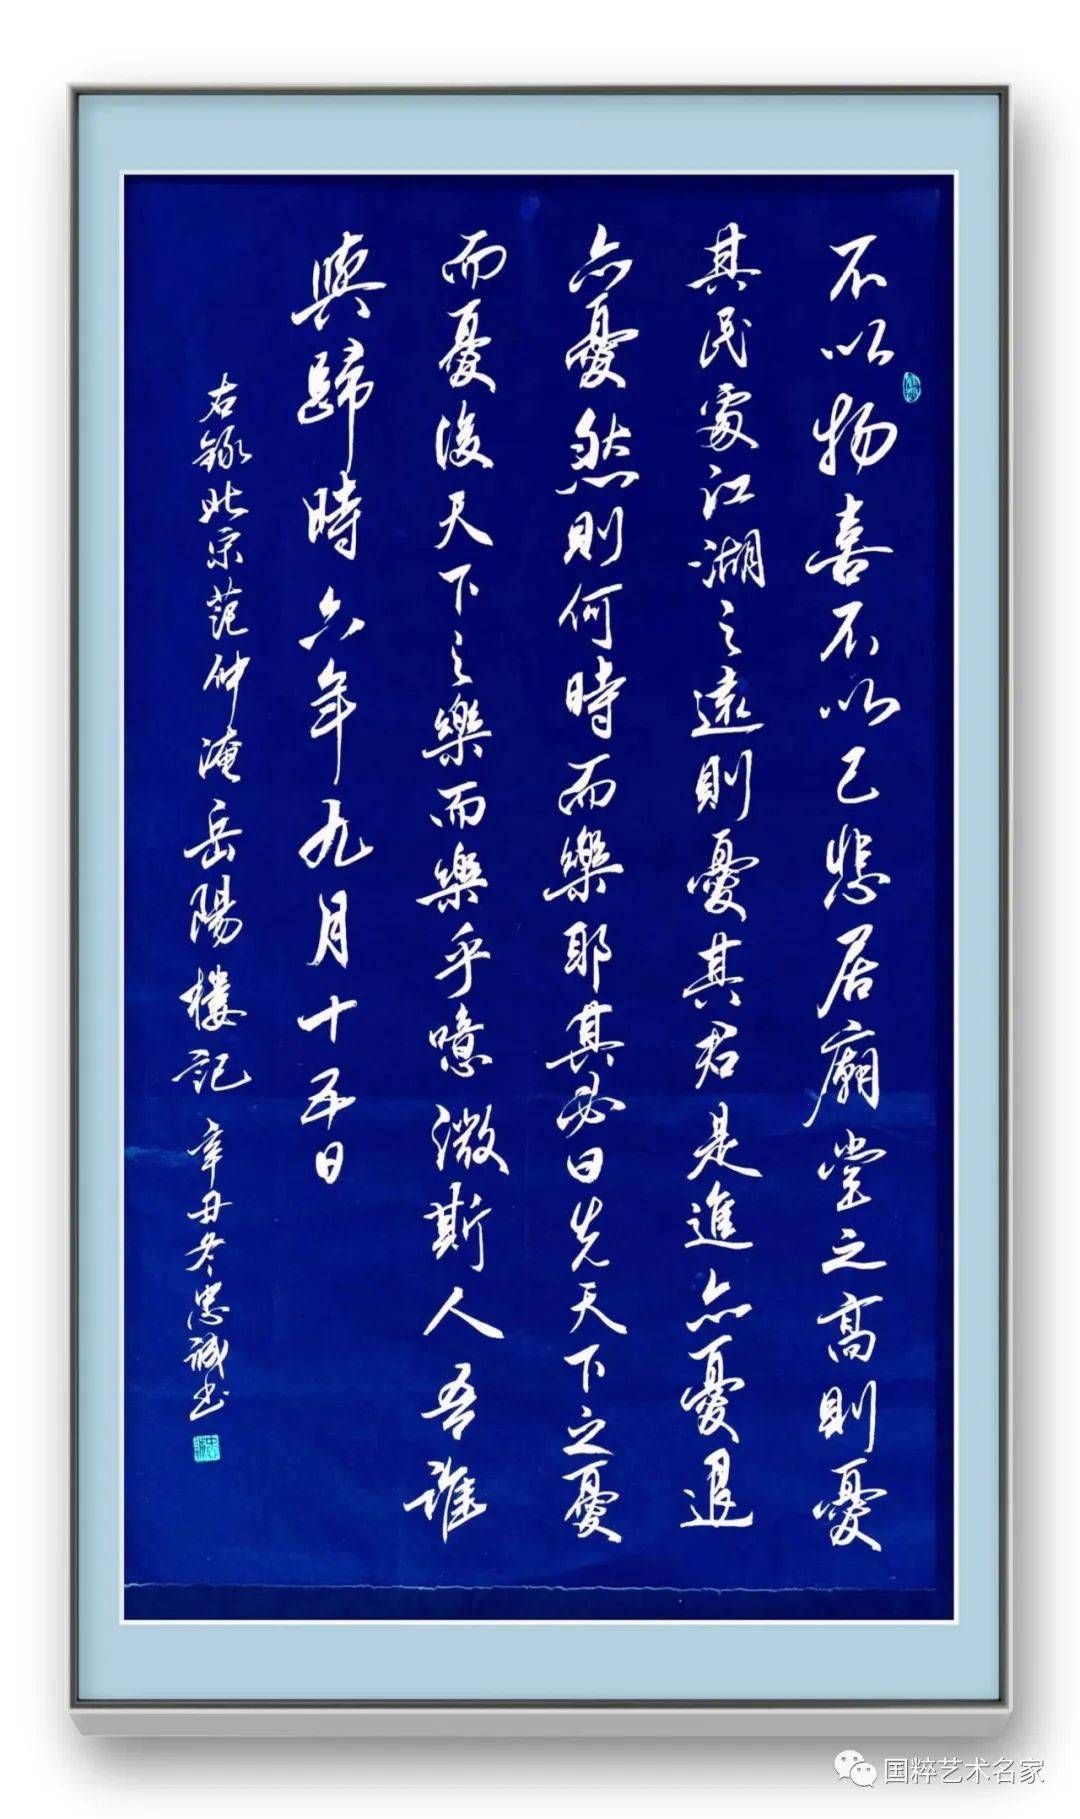 不以物喜不以己悲居廟堂之高則憂
其民處江湖之遠則憂其君是進亦憂退
亦憂然則何時而樂耶其必曰先天下之憂
而憂後天下之樂而樂乎噫微斯人吾誰
與歸時六年九月十五日
右録北宋范仲淹岳陽樓記 辛丑冬忠誠书
国粹艺术名家